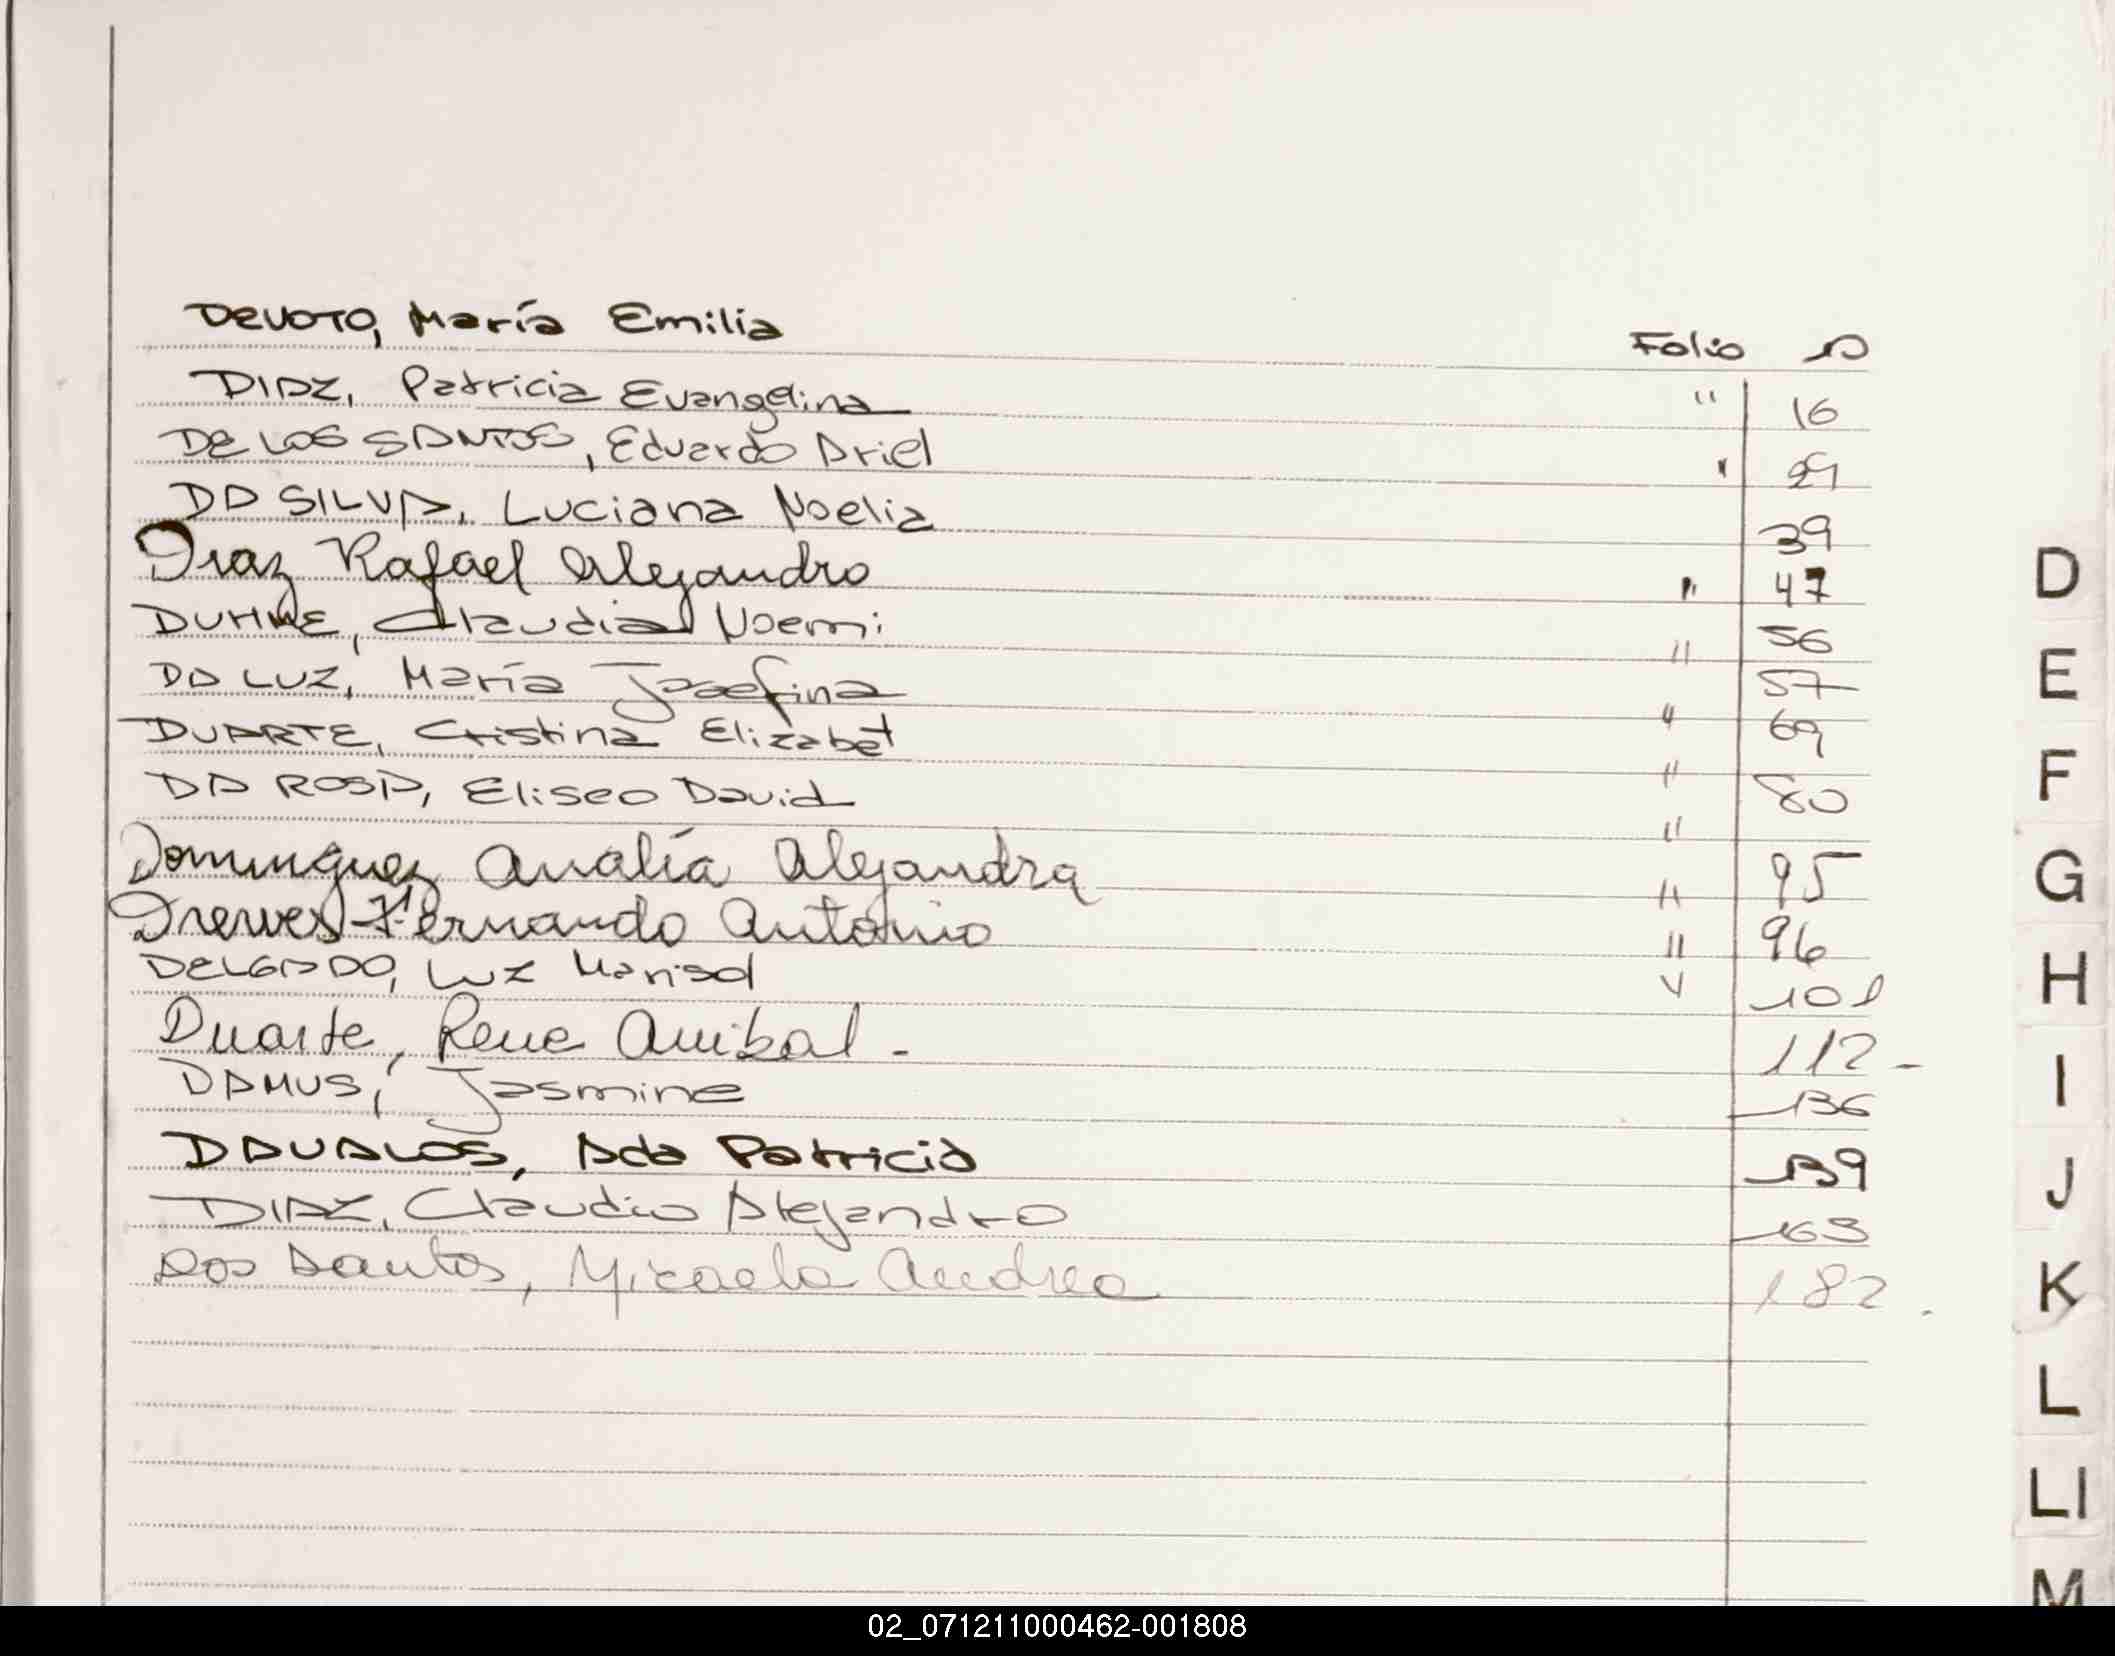 DEVOTO, María Emilia Folio 10
DIAZ, Patricia Evangelina " 16
DE LOS SANTOS, Eduardo Ariel " 29
DA SILVA, Luciana Noelia 39
Diaz Rafael Alejandro " 47
DUHNE, Claudia Noemi " 56
DA LUZ, María Josefina " 57
DUARTE, Cristina Elizabet " 69
DA ROSA, Eliseo David " 80
Dominguez Analía Alejandra " 95
Drewes Fernando Antonio " 96
DELGADO, Luz Marisol " 101
Duarte, Rene Anibal - 112 -
DAMUS, Jasmine 136
DAVALOS, Ada Patricia 139
DIAZ, Claudio Alejandro 163
Dos Santos, Micaela Andrea 182.
D
E
F
G
H
I
J
K
L
Ll
M
02_071211000462-001808